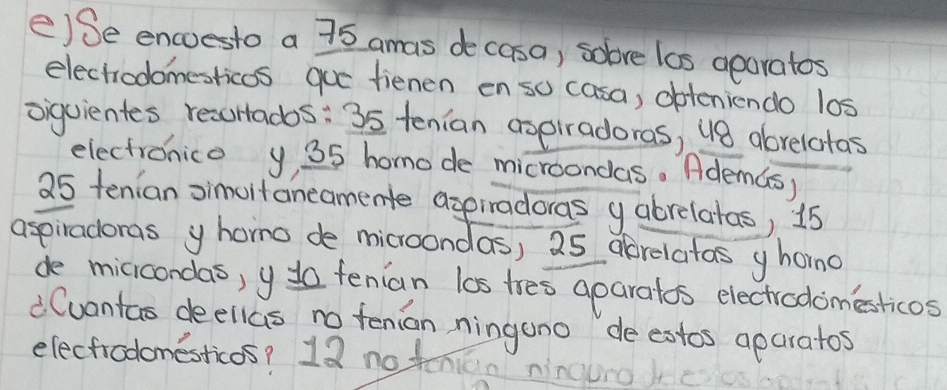 e) Se encuesto a 75 amas de casa, sobre los aparatos
electrodomésticos que tienen en su casa, obteniendo los
siguientes resultados: 35 tenían aspiradoras, 48 abrelatas
electrónico y, 35 horno de microondas. Además,
25 tenían simultáneamente aspiradoras y abrelatas, 15
aspiradoras y horno de microondas, 25 abrelatas y horno
de microondas, y 10 tenían los tres aparatos electrodomésticos
¿Cuantas de ellas no tenían ninguno de estos aparatos
electrodomésticos? 12 no tenían ninguno de